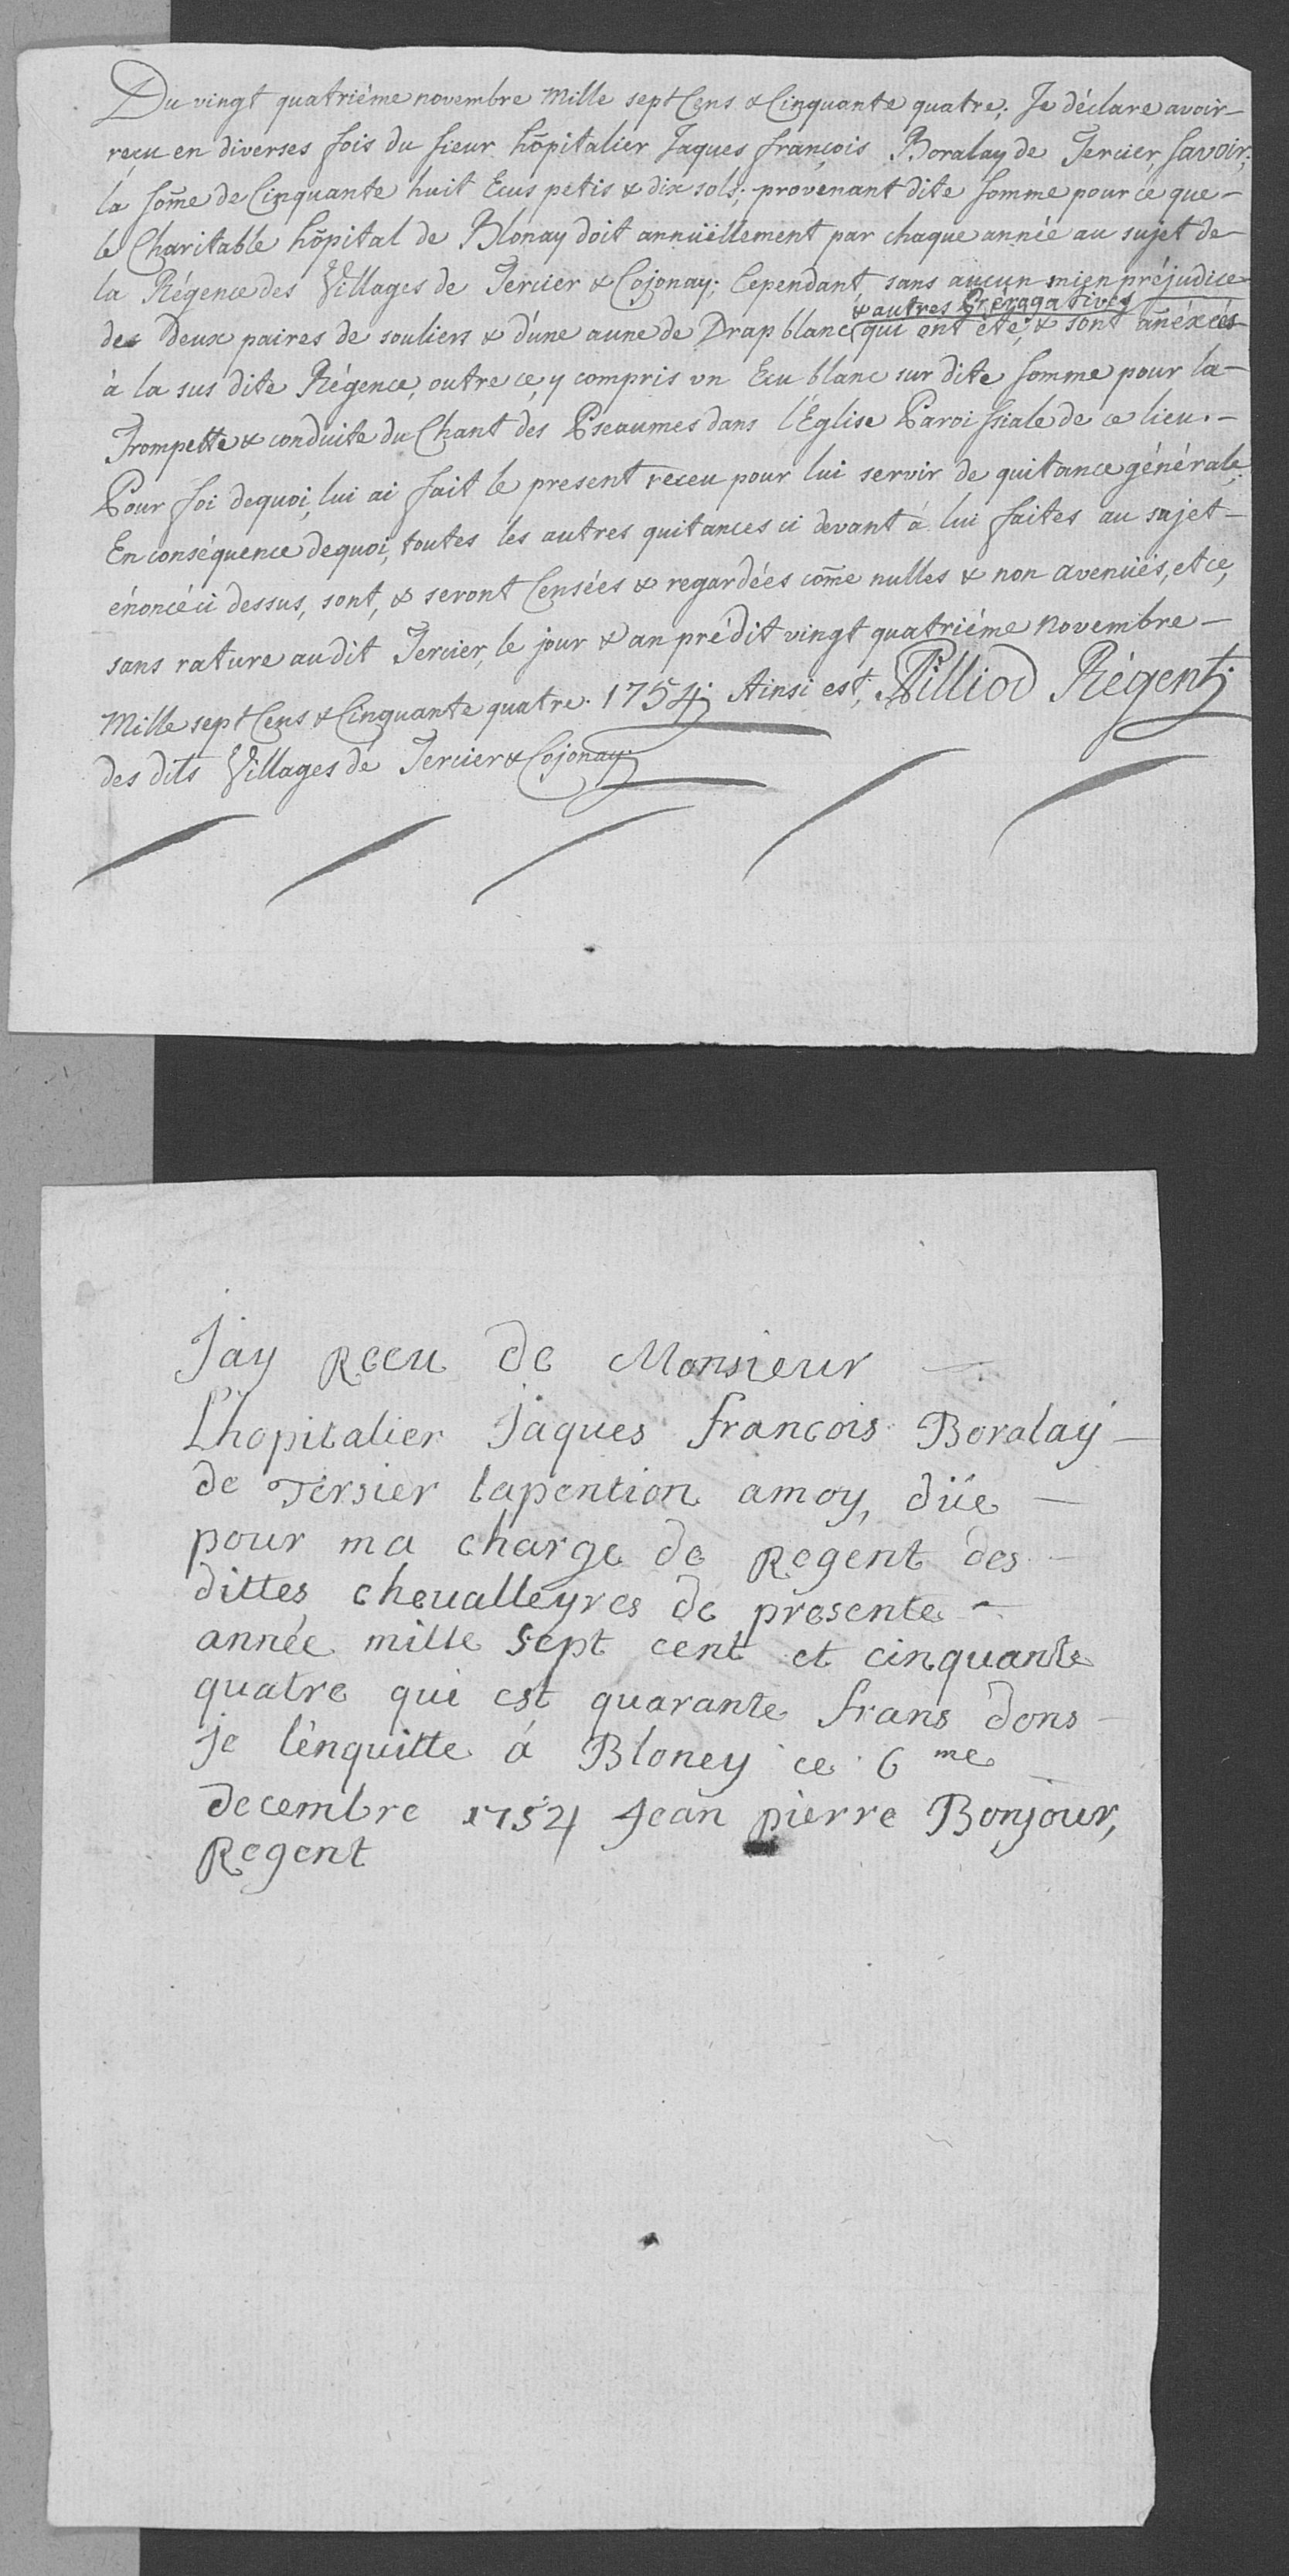 Du vingt quatriéme novembre Mille sept Cens & Cinquante quatre; Je déclare avoir-
reçu en diverses fois du sieur hôpitalier Jaques françois Boralay de Tercier, savoir;
la som̃e de Cinquante huit Ecus petis & dix sols; provenant dite somme pour ce que-
le Charitable hôpital de Blonay doit annüellement par chaque année au sujet de-
la Régence des Villages de Tercier & Cojonay; Cependant sans aucun mien préjudice-
& autres Prérogatives
des Deux paires de souliers & d'une aune de Drap blanc (qui ont été, & sont añéxées-
à la sus dite Régence, outre ce, y compris vn Ecu blanc sur dite somme pour la-
Trompette & conduite du Chant des Pseaumes dans l'Eglise Paroissiale de ce lieu.-
Pour foi dequoi, lui ai fait le present receu pour lui servir de quitance générale;
En conséquence dequoi, toutes les autres quitances ci devant à lui faites au sujet-
énoncé ci dessus, sont, & seront Censées & regardées com̃e nulles & non avenüës, et ce,
sans rature audit Tercier, le jour & an prédit vingt quatriéme novembre-
Mille sept Cens & Cinquante quatre. 1754; Ainsi est, Pilliod Régent;
des dits Villages de Tercier & Cojonay;
Jay Receu de Monsieur -
L'hopitalier Jaques francois Boralay -
de Tersier lapention amoy, düe -
pour ma charge de Regent des -
dittes chevalleyres de presente -
année mille sept cent et cinquante
quatre qui est quarante frans dons -
je lénquitte á Bloney ce 6 me
decembre 1754 Jean pierre Bonjour,
Regent